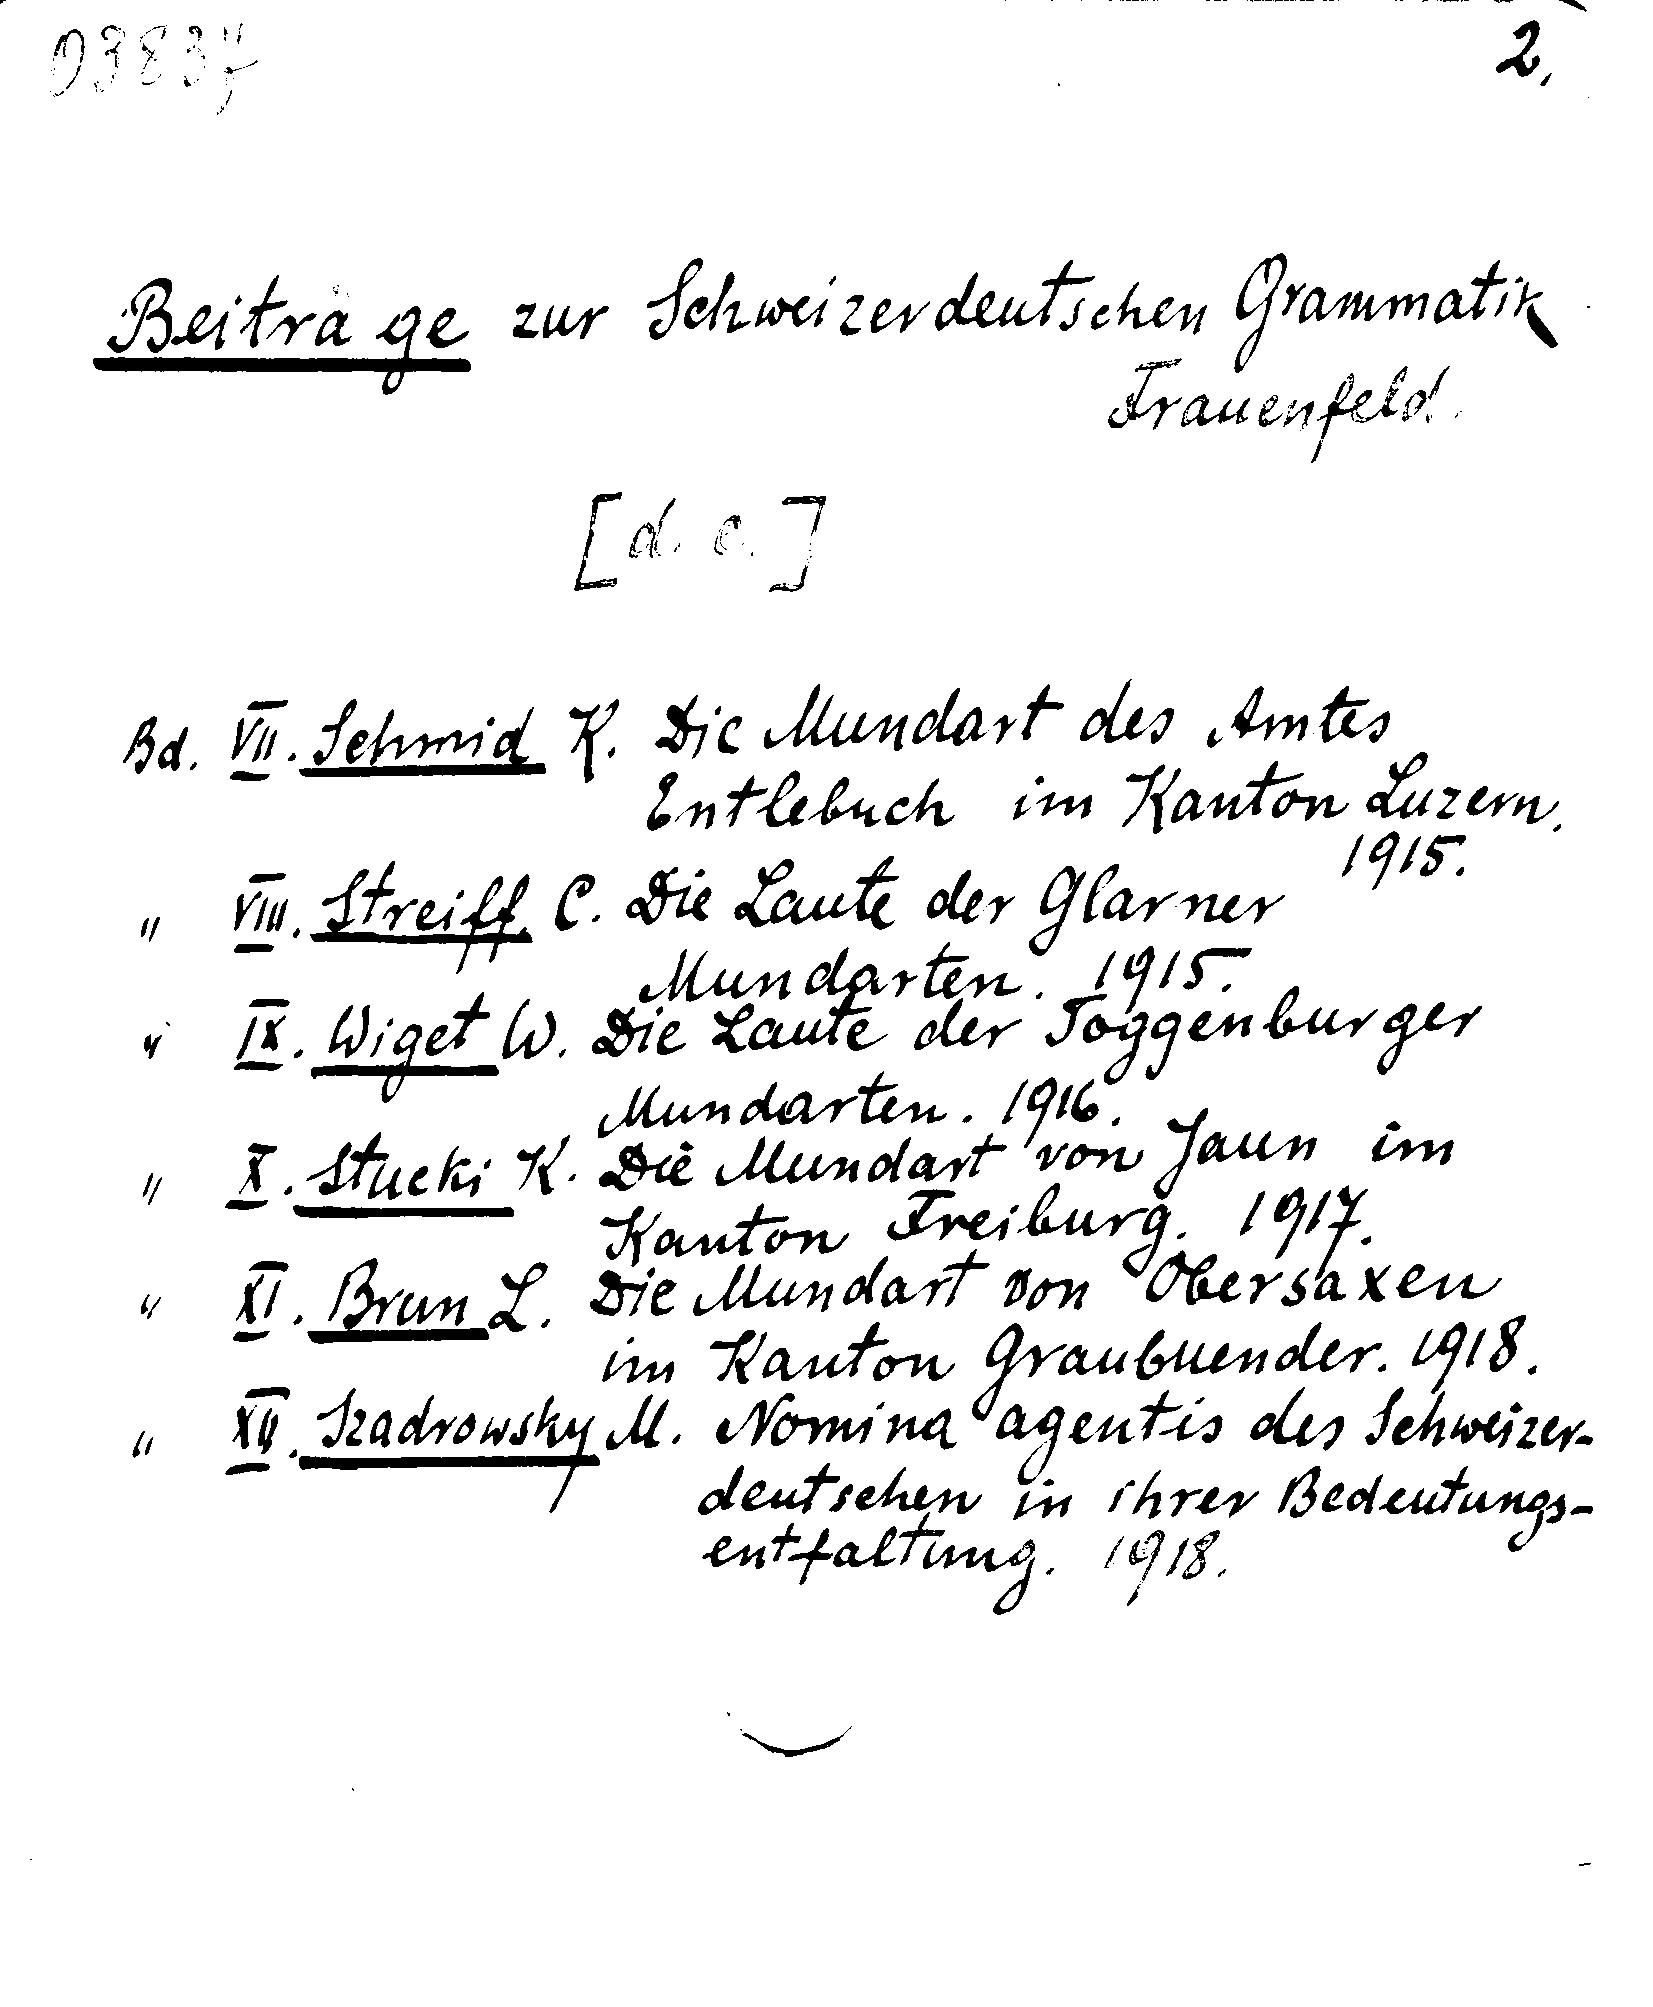 03837
2.
Beiträge zur Schweizerdeutschen Grammatik
Frauenfeld.
[d. c.]
Bd. VII. Schmid K. Die Mundart des Amtes
Entlebuch im Kanton Luzern.
1915.
" VIII. Streiff, C. Die Laute der Glarner
Mundarten. 1915.
" IX. Wiget W. Die Laute der Toggenburger
Mundarten. 1916.
" X. Stucki K. Die Mundart von Jaun im
Kanton Freiburg. 1917.
" XI. Brun L. Die Mundart von Obersaxen
im Kanton Graubuenden. 1918.
" XII. Szadrowsky M. Nomina agentis des Schweizer-
deutschen in ihrer Bedeutungs-
entfaltung. 1918.